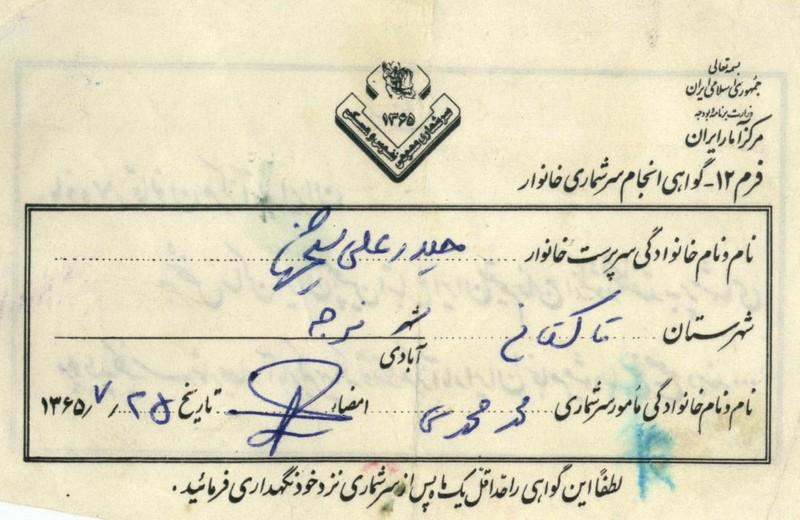 بسمه تعالی
جمهوری اسلامی ایران
وزارت برنامه و بودجه
مرکز آمار ایران
۱۳۶۵
سرشماری عمومی نفوس و مسکن
فرم ۱۲- گواهی انجام سرشماری خانوار
نام و نام خانوادگی سرپرست خانوار حیدر علی
شهرستان تاکستان شهر نرجه
آبادی
نام و نام خانوادگی مأمور سرشماری محمد محمدی امضاء تاریخ ۲۵/۷/۱۳۶۵
لطفاً این گواهی را حداقل یک ماه پس از سرشماری نزد خود نگهداری فرمائید.